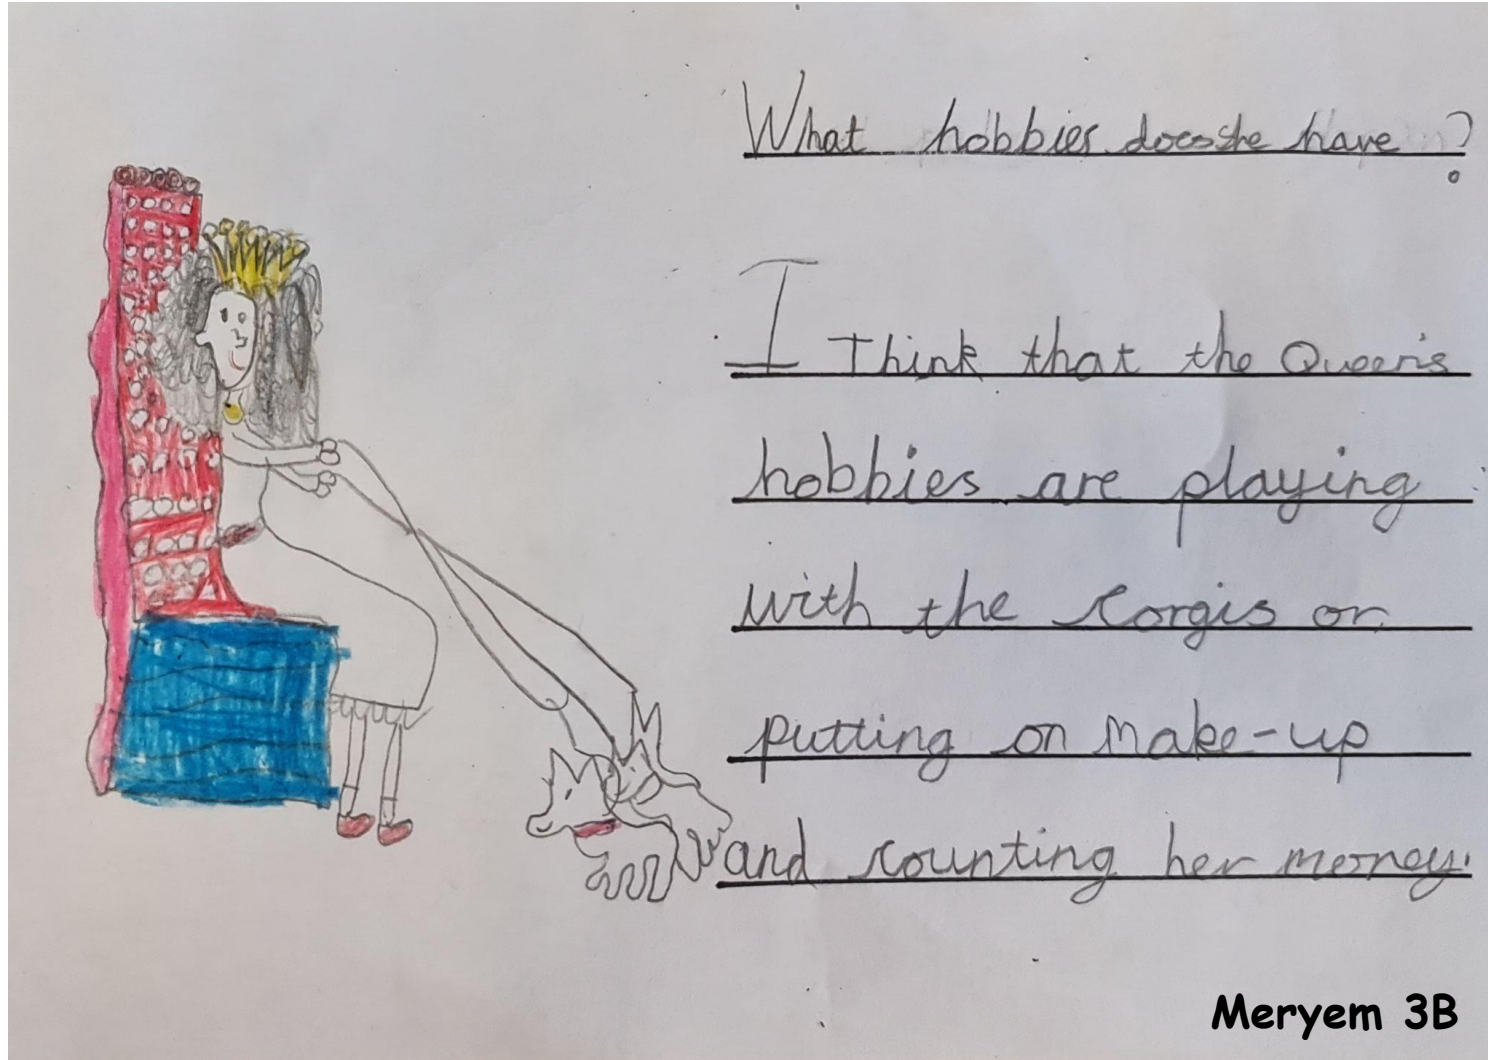 What hobbies does she have ?
I Think that the Queen's
hobbies are playing
with the corgis or
putting on make-up
and counting her money.
Meryem 3B